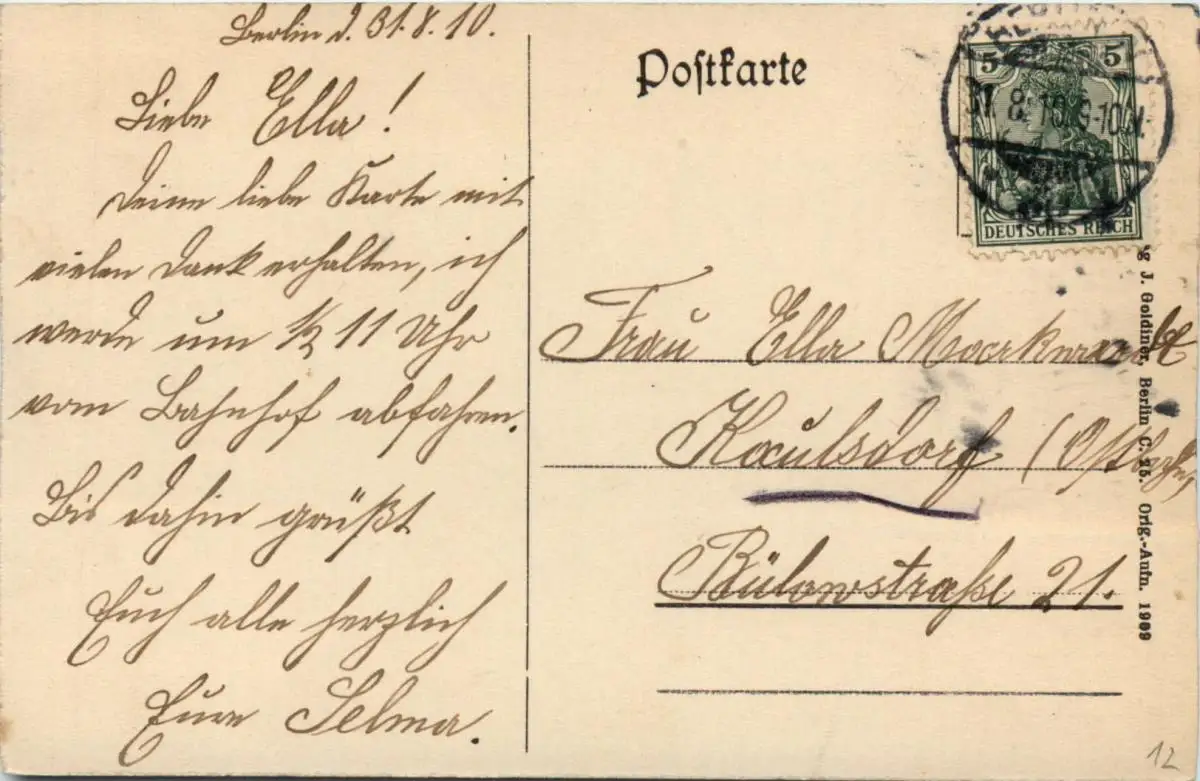 Berlin d. 31.8.10.
Liebe Ella!
Deine liebe Karte mit
vielen Dank erhalten, ich
werde um ½ 11 Uhr
vom Bahnhof abfahren.
Bis dahin grüßt
Euch alle herzlich
Eure Selma.
Postkarte
5 5
31.8.10. 9-10N.
DEUTSCHES REICH
Frau Ella Marckwardt
Kaulsdorf (Ostbahn)
Bülowstraße 21.
g J. Goldiner, Berlin C. 25. Orig.-Aufn. 1909
12